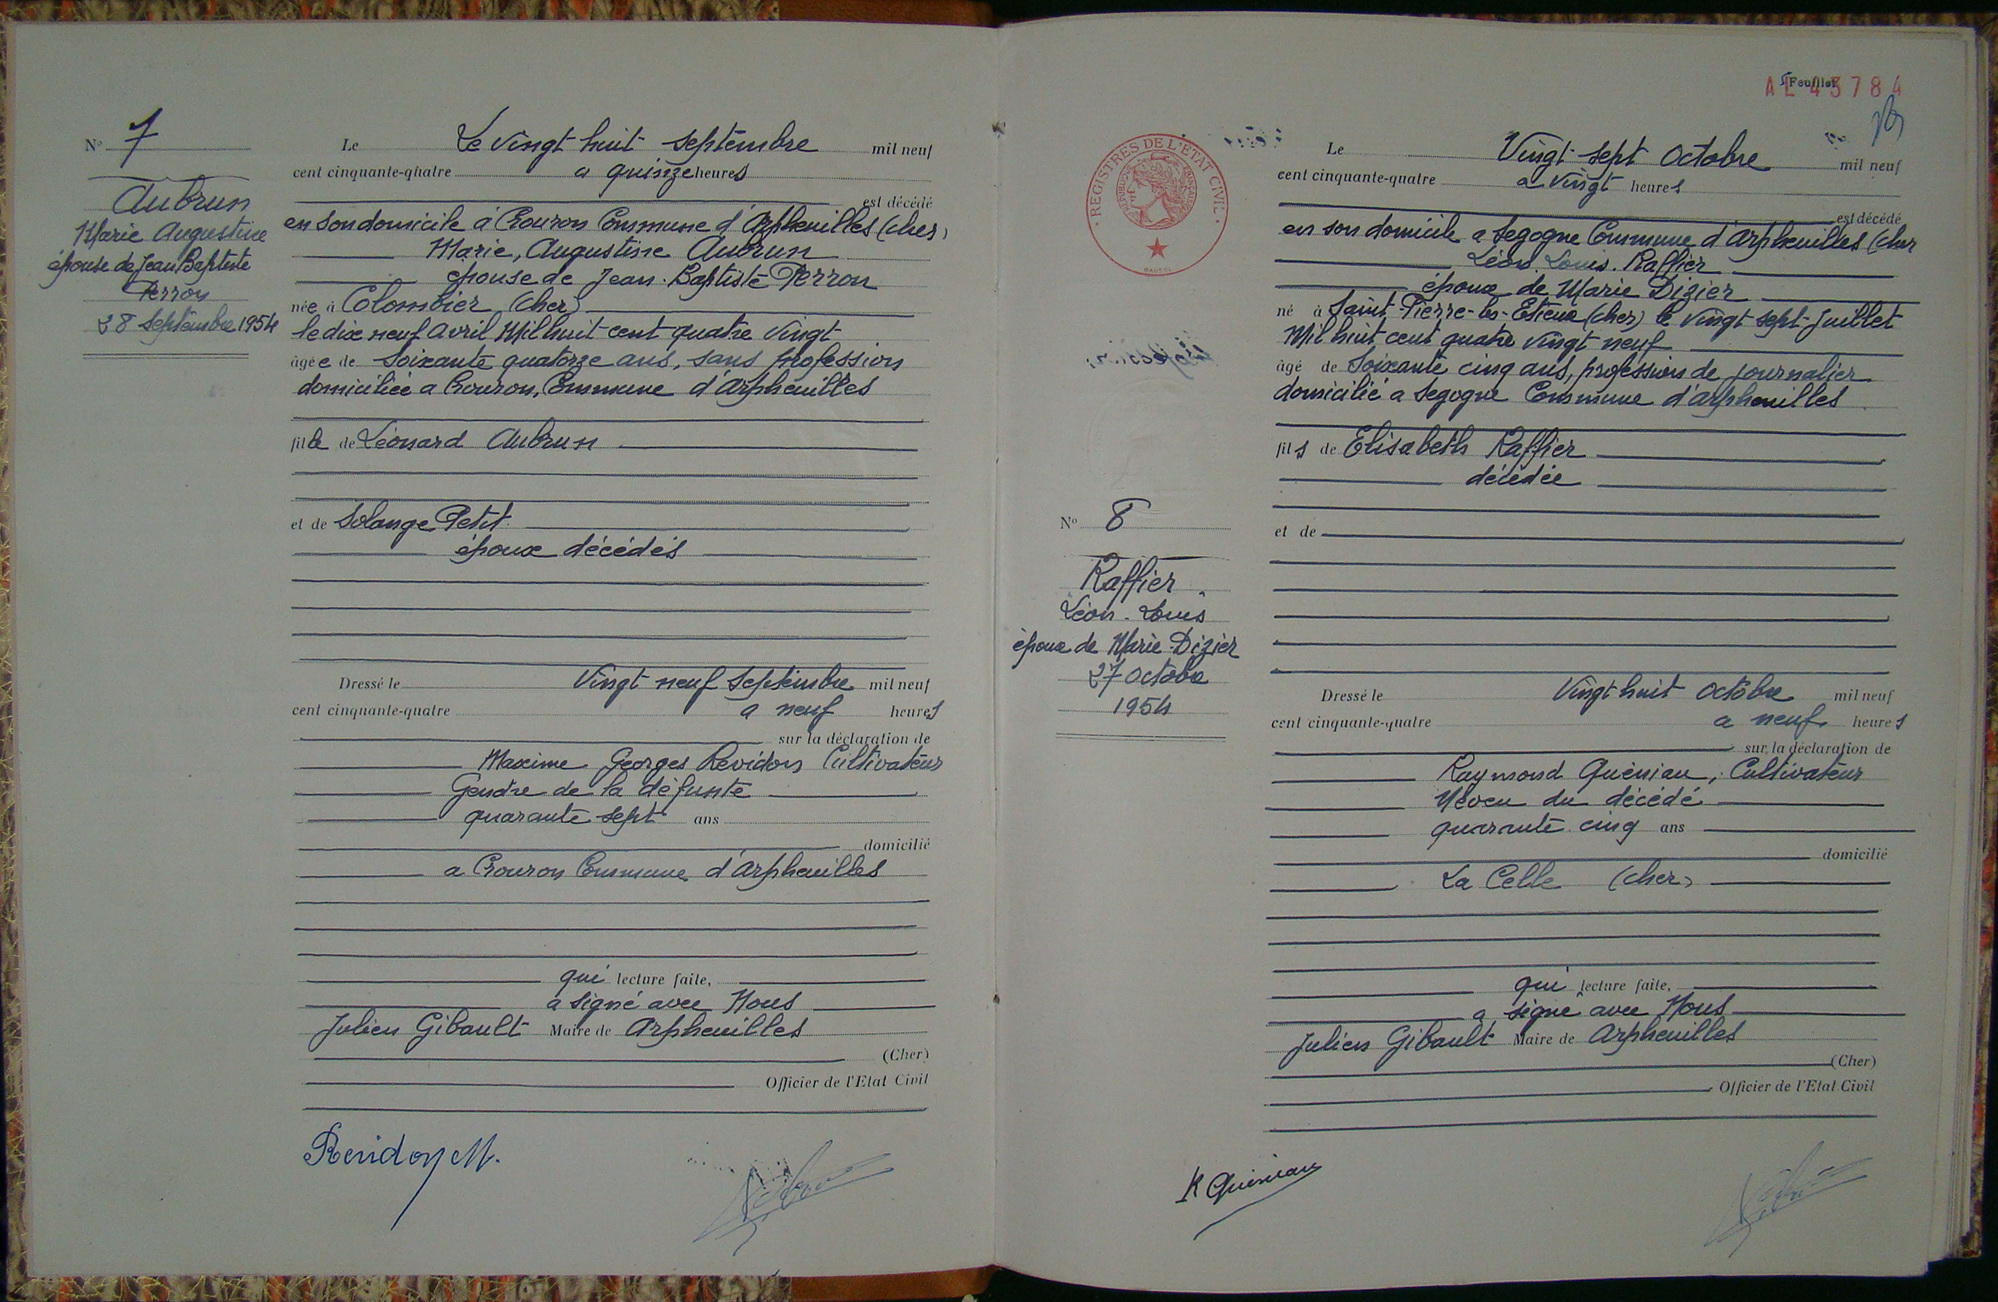 N° 7
Aubrun
Marie Augustine
épouse de Jean Baptiste
Perron
28 Septembre 1954
Le Le Vingt huit Septembre mil neuf
cent cinquante-quatre a quinze heures
est décédé
en son domicile à Crouron Commune d'Arpheuilles (cher)
Marie, Augustine Aubrun
épouse de Jean-Baptiste Perron
née à Colombier (cher)
le dix neuf avril Mil huit cent quatre vingt
âgée de Soixante quatorze ans, sans profession
domiciliée a Crouron, Commune d'Arpheuilles
fille de Léonard Aubrun
et de Solange Petit
époux décédés
Dressé le Vingt neuf Septembre mil neuf
cent cinquante-quatre a neuf heures
sur la déclaration de
Maxime Georges Revidon Cultivateur
Gendre de la défunte
quarante sept ans
domicilié
a Crouron Commune d'Arpheuilles
qui lecture faite,
a signé avec Nous
Julien Gibault Maire de Arpheuilles
(Cher)
Officier de l'Etat Civil
Revidon M.
Feuillet
AL 43784
REGISTRES DE L'ETAT CIVIL
Le Vingt sept Octobre mil neuf
cent cinquante-quatre a vingt heures
est décédé
en son domicile a Segogne Commune d'Arpheuilles (cher
Léon. Louis. Raffier
époux de Marie Dizier
né à Saint-Pierre-les-Etieux (cher) le vingt sept Juillet
Mil huit cent quatre vingt neuf
âgé de Soixante cinq ans, profession de journalier
domicilié a Segogne Commune d'Arpheuilles
fils de Elisabeth Raffier
décédée
et de
N° 8
Raffier
Léon-Louis
époux de Marie Dizier
27 Octobre
1954
Dressé le Vingt huit Octobre mil neuf
cent cinquante-quatre a neuf heures
sur la déclaration de
Raymond Quéniau, Cultivateur
Neveu du décédé
quarante cinq ans
domicilié
La Celle (cher)
qui lecture faite,
a signé avec Nous
Julien Gibault Maire de Arpheuilles
(Cher)
Officier de l'Etat Civil
R Quéniau